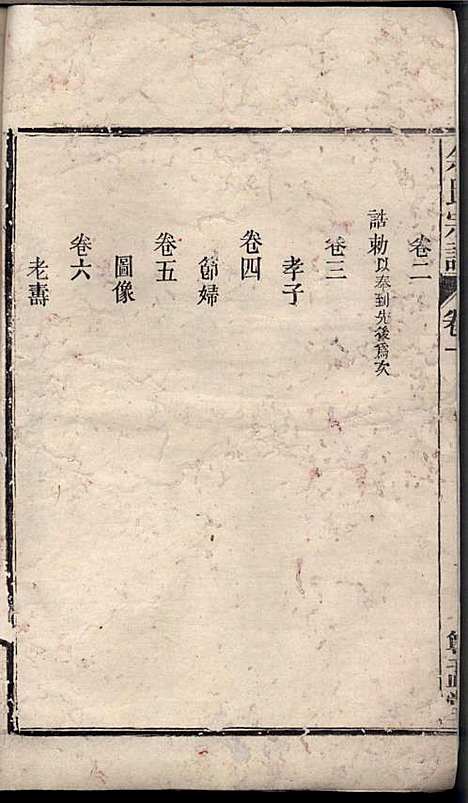 卷二
誥勅以奉到先後爲次
卷三
孝子
卷四
節婦
卷五
圖像
卷六
老壽
氏宗譜
卷一